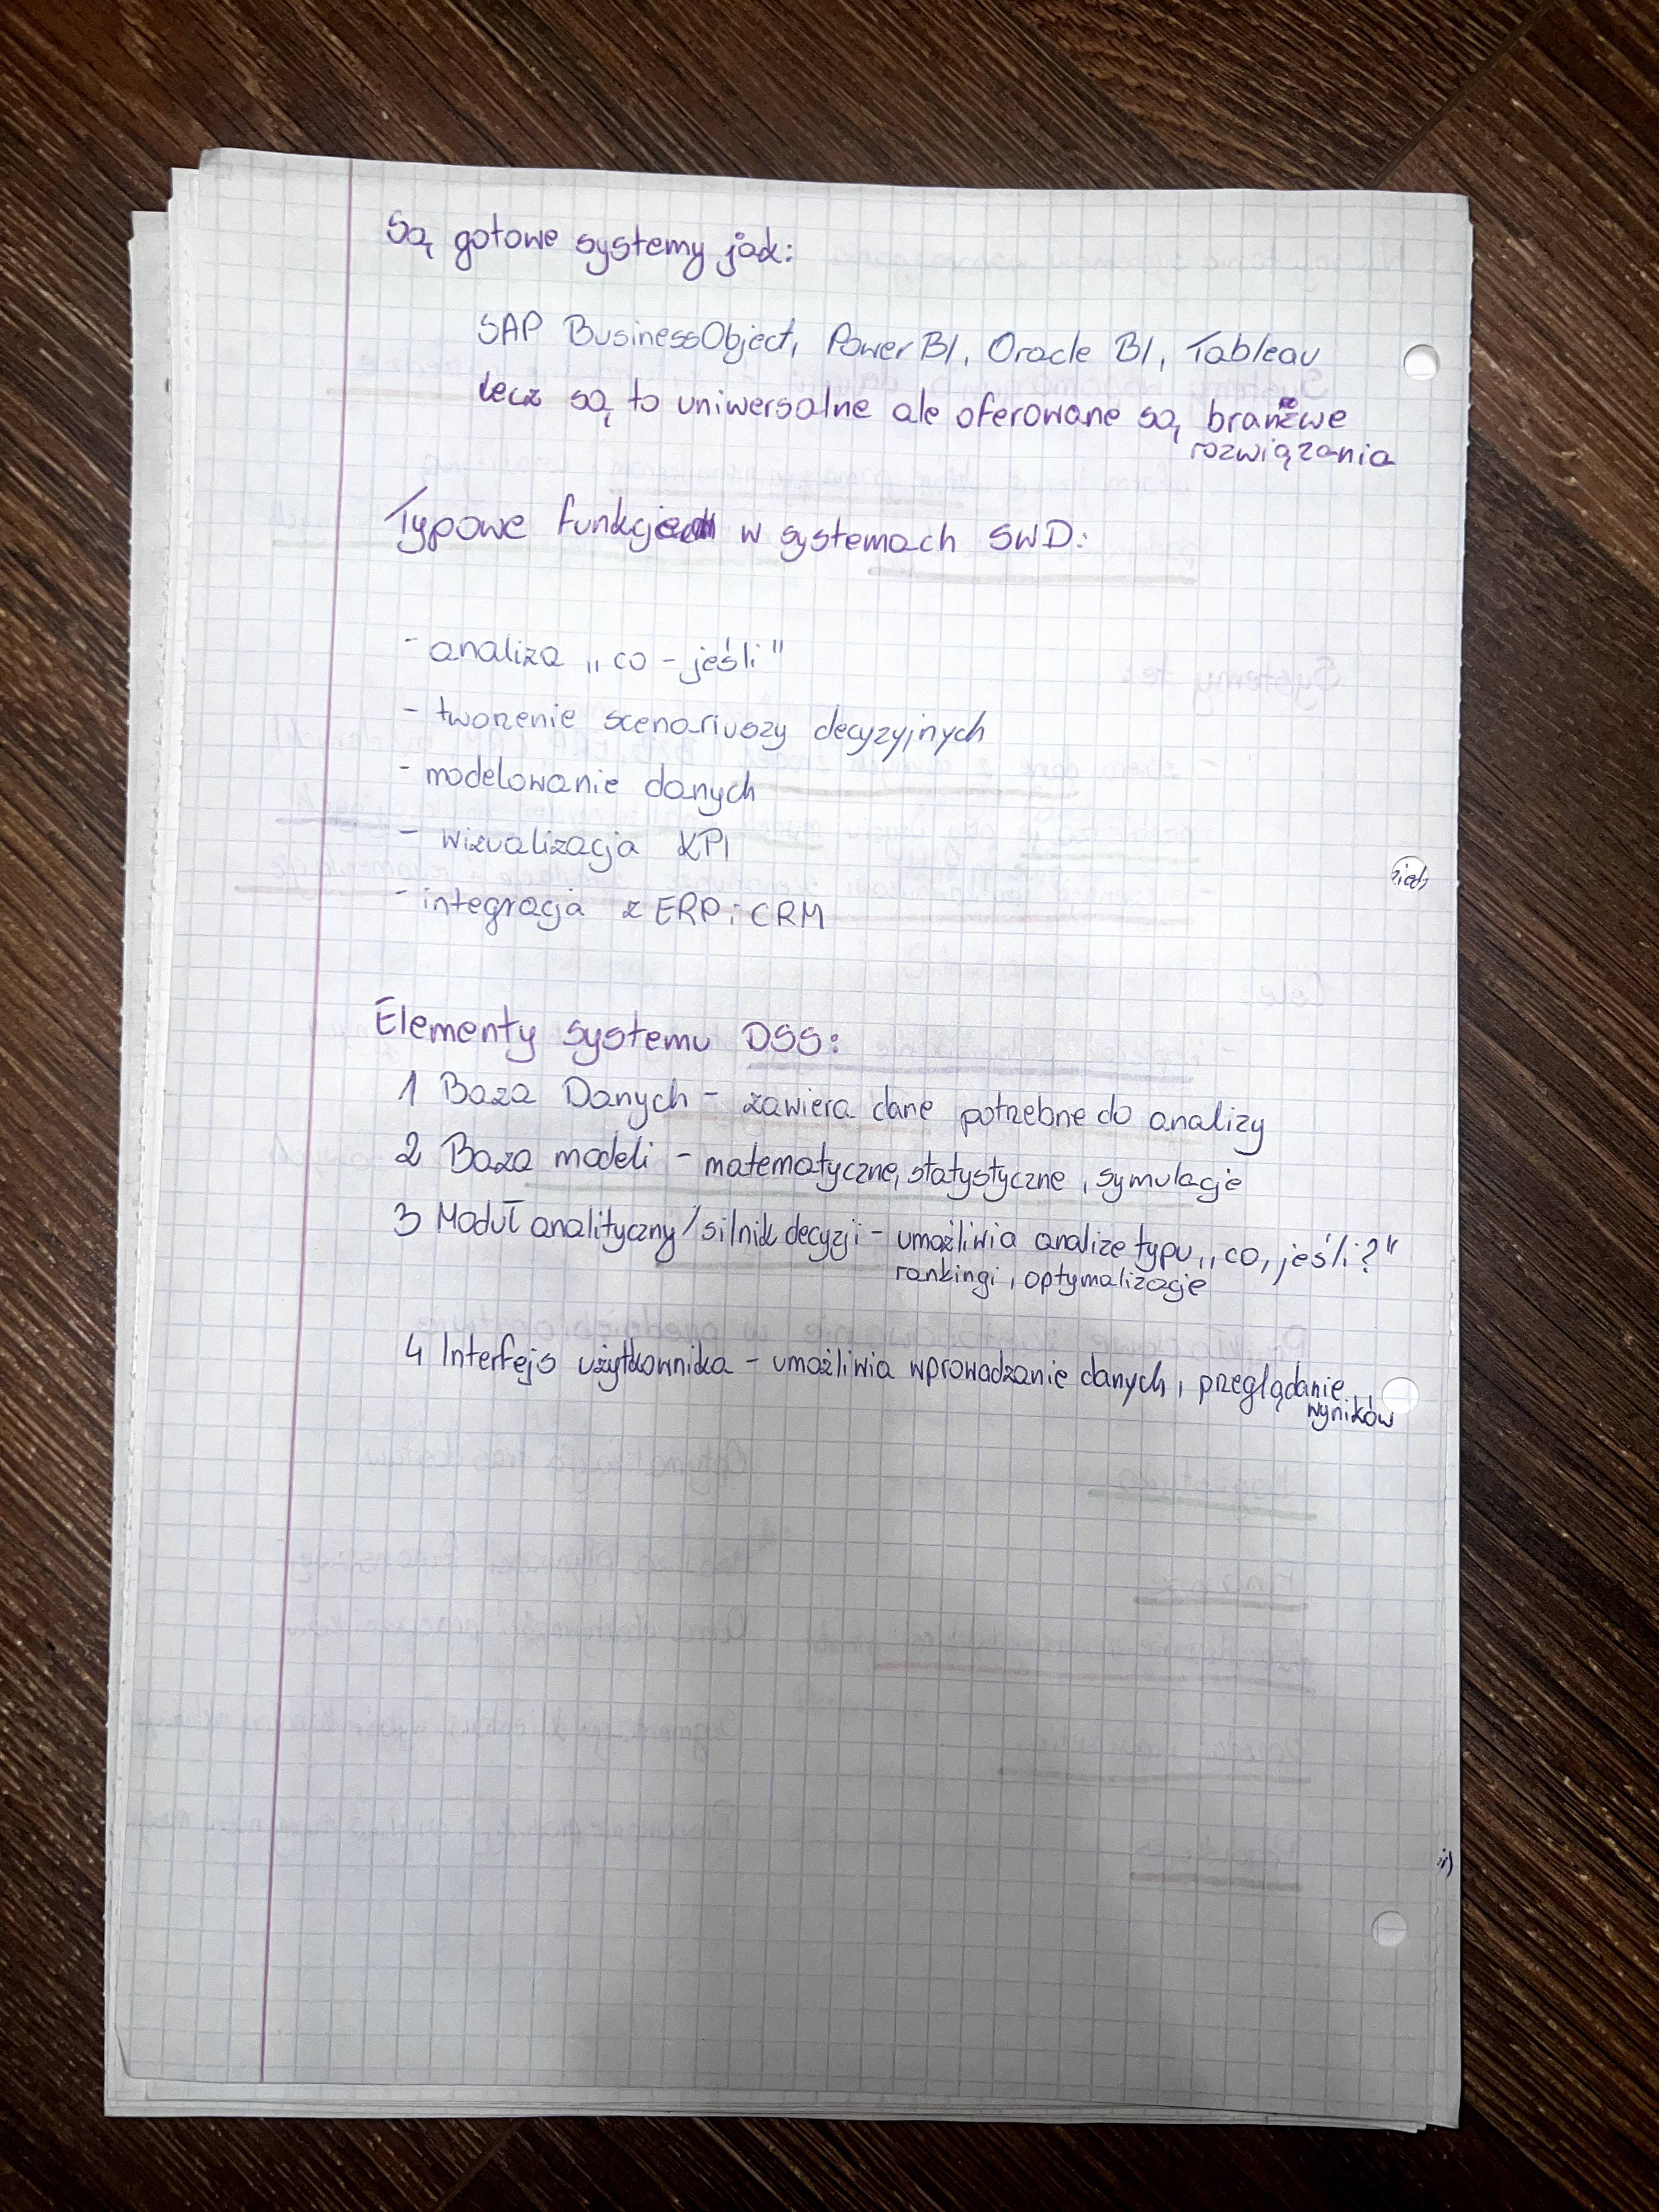 Są gotowe systemy jak:
SAP BusinessObject, Power BI, Oracle BI, Tableau
lecz są to uniwersalne ale oferowane są branżwe
rozwiązania
Typowe funkcje w systemach SWD:
- analiza „co - jeśli"
- tworzenie scenariuszy decyzyjnych
- modelowanie danych
- wizualizacja KPI
- integracja z ERP i CRM
Elementy systemu DSS:
1 Baza Danych - zawiera dane potrzebne do analizy
2 Baza modeli - matematyczne, statystyczne, symulacje
3 Moduł analityczny/silnik decyzji - umożliwia analize typu „co, jeśli?"
rankingi, optymalizacje
4 Interfejs użytkownika - umożliwia wprowadzanie danych, przeglądanie
wyników